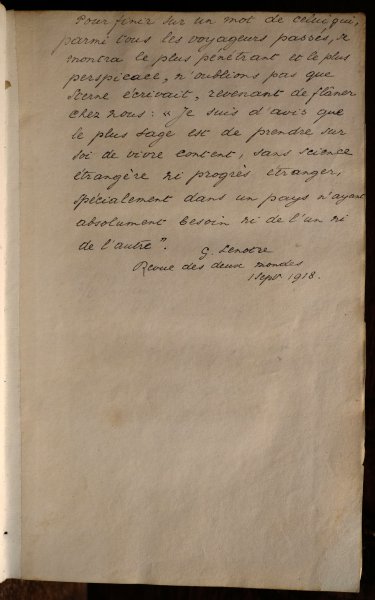 Pour finir sur un mot de celui qui,
parmi tous les voyageurs passés, se
montra le plus pénétrant et le plus
perspicace, n'oublions pas que
Sterne écrivait, revenant de flâner
chez nous : « Je suis d'avis que
le plus sage est de prendre sur
soi de vivre content, sans science
étrangère ni progrès étranger,
spécialement dans un pays n'ayant
absolument besoin ni de l'un ni
de l'autre ".
G. Lenotre
Revue des deux mondes
1 Sept. 1918.